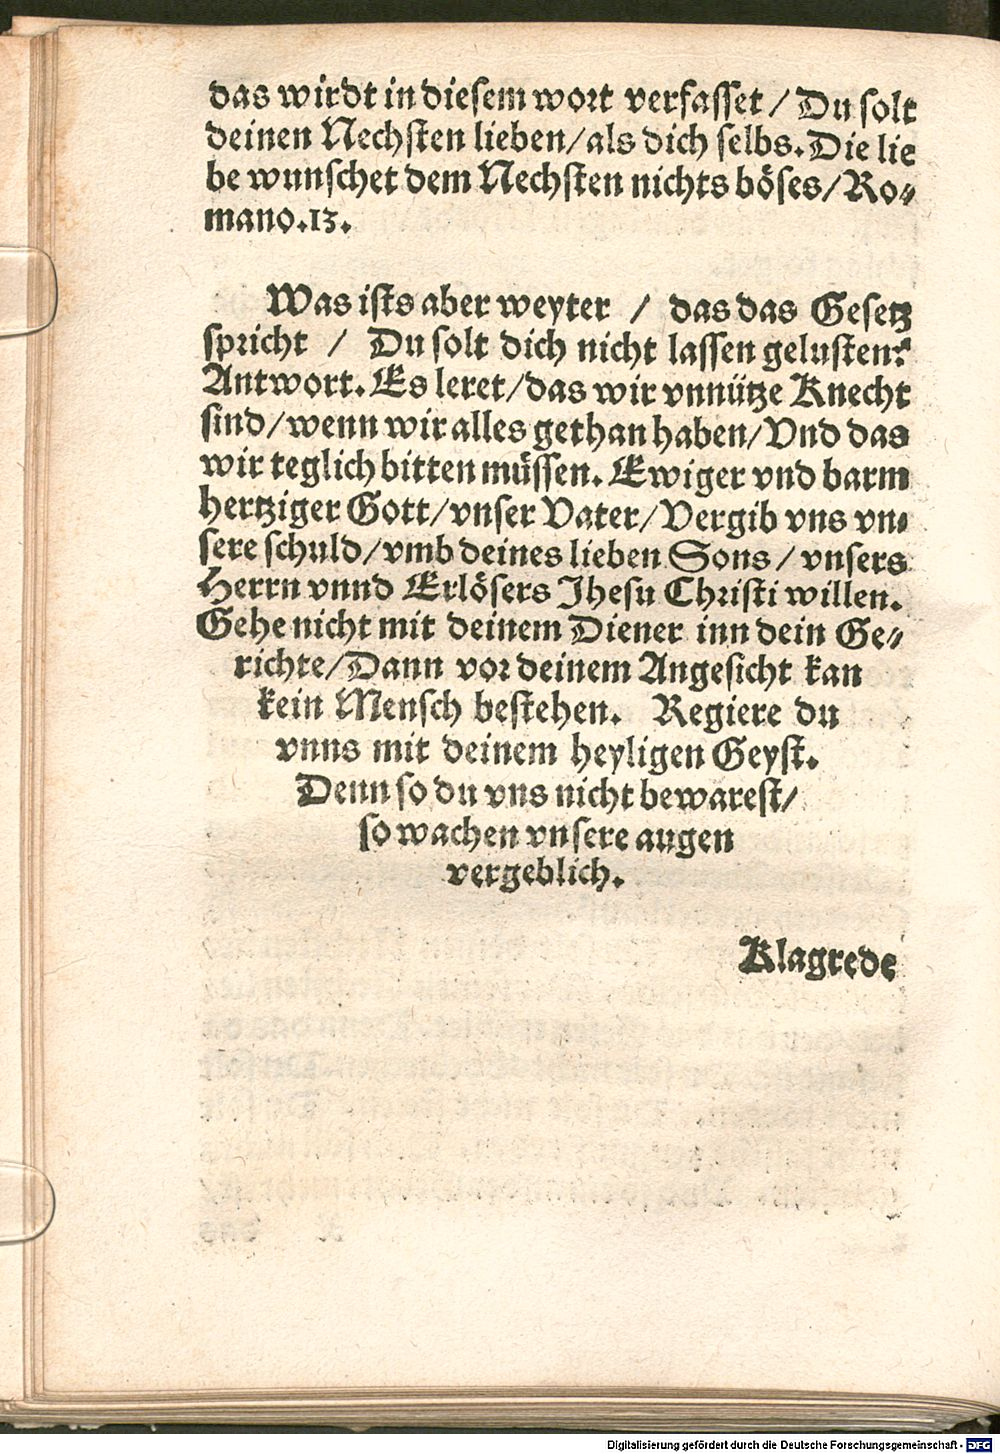 das wirdt in diesem wort verfasset / Du solt
deinen Nechsten lieben/als dich selbs. Die lie
be wunschet dem Nechsten nichts böses/Ro-
mano.13.
Was ists aber weyter / das das Gesetz
spricht / Du solt dich nicht lassen gelusten?
Antwort. Es leret/das wir vnnütze Knecht
sind/wenn wir alles gethan haben/Vnd das
wir teglich bitten müssen. Ewiger vnd barm
hertziger Gott/vnser Vater/Vergib vns vn-
sere schuld/vmb deines lieben Sons / vnsers
Herrn vnnd Erlösers Jhesu Christi willen.
Gehe nicht mit deinem Diener inn dein Ge-
richte/Dann vor deinem Angesicht kan
kein Mensch bestehen. Regiere du
vnns mit deinem heyligen Geyst.
Denn so du vns nicht bewarest/
so wachen vnsere augen
vergeblich.
Klagrede
Digitalisierung gefördert durch die Deutsche Forschungsgemeinschaft - DFG